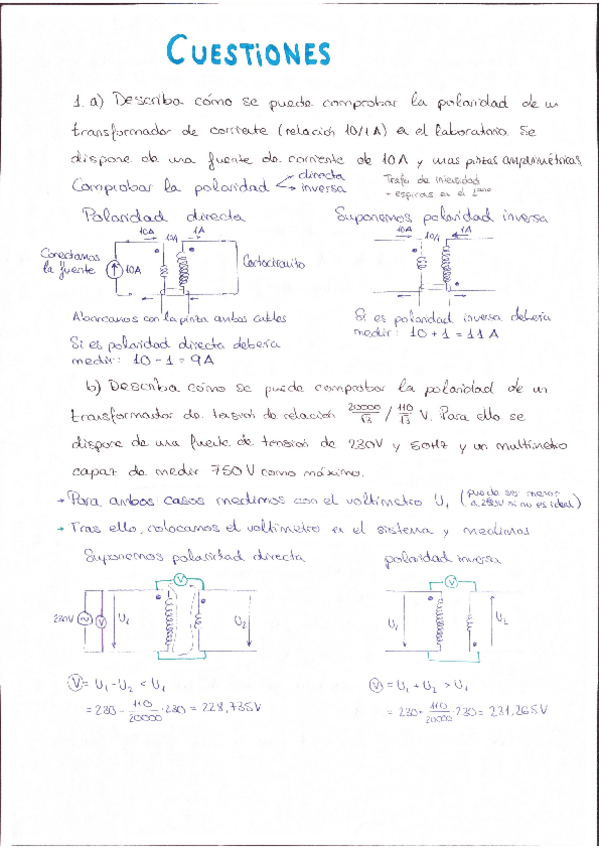 CUESTIONES
1. a) Describa cómo se puede comprobar la polaridad de un
transformador de corriente (relación 10/1 A) en el laboratorio. Se
dispone de una fuente de corriente de 10A y unas pinzas amperimétricas.
Comprobar la polaridad directa
inversa
Trafo de intensidad
- espiras en el 1ario
Polaridad directa
Suponemos polaridad inversa
10A 10/1 1A
10A 10/1 1A
Conectamos
la fuente
10A
Cortocircuito
Abarcamos con la pinza ambos cables
Si es polaridad directa debería
medir: 10 - 1 = 9A
Si es polaridad inversa debería
medir: 10 + 1 = 11 A
b) Describa cómo se puede comprobar la polaridad de un
transformador de tensión de relación 20000/√3 / 110/√3 V. Para ello se
dispone de una fuente de tensión de 230V y 50Hz y un multímetro
capaz de medir 750 V como máximo.
→ Para ambos casos medimos con el voltímetro U1 (puede ser menor a 230V si no es ideal)
→ Tras ello, colocamos el voltímetro en el sistema y medimos
Suponemos polaridad directa
polaridad inversa
V
V
230V V U1 U2
U1 U2
V = U1 - U2 < U1
= 230 - 110/20000 · 230 = 228,735V
V = U1 + U2 > U1
= 230 + 110/20000 · 230 = 231,265V